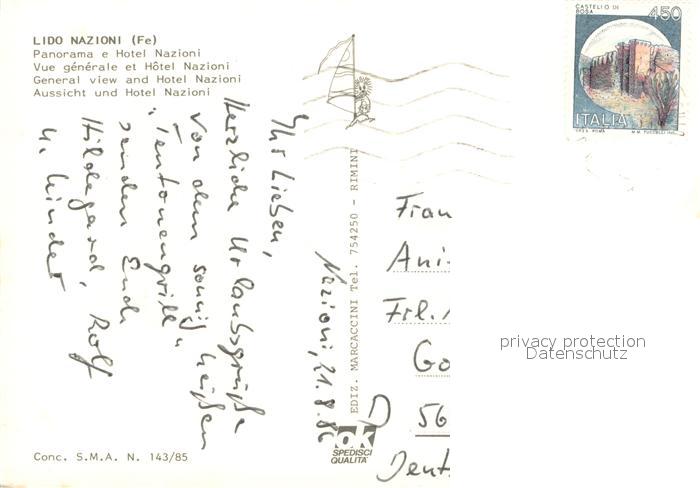 LIDO NAZIONI (Fe)
Panorama e Hotel Nazioni
Vue générale et Hôtel Nazioni
General view and Hotel Nazioni
Aussicht und Hotel Nazioni
Nazioni, 21.8.86
Ihr Lieben,
Herzliche Urlaubsgrüße
von dem sonnig heißen
"Teutonengrill"
senden Euch
Hildegard, Rolf
u. Kinder
Conc. S.M.A. N. 143/85
EDIZ. MARCACCINI Tel. 754250 - RIMINI
ok
SPEDISCI
QUALITÀ
CASTELLO DI
BOSA
450
ITALIA
Frau
Ani
Frl.
Go
D 56
Deut
privacy protection
Datenschutz